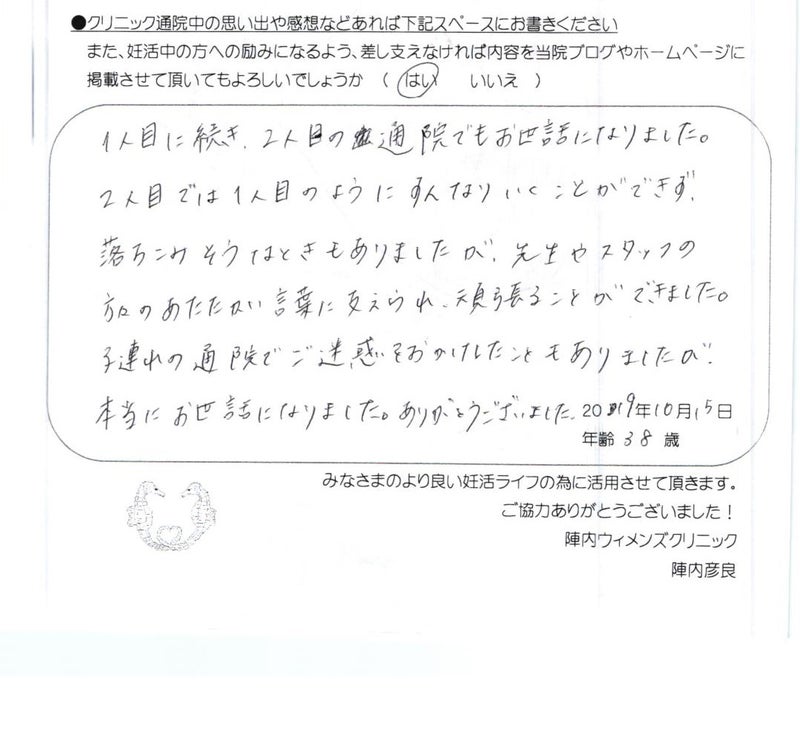 ●クリニック通院中の思い出や感想などあれば下記スペースにお書きください
また、妊活中の方への励みになるよう、差し支えなければ内容を当院ブログやホームページに
掲載させて頂いてもよろしいでしょうか （ はい　いいえ ）
1人目に続き、2人目の通院でもお世話になりました。
2人目では1人目のようにすんなりいくことができず、
落ちこみそうなときもありましたが、先生やスタッフの
方々のあたたかい言葉に支えられ、頑張ることができました。
子連れの通院でご迷惑をおかけしたこともありましたが、
本当にお世話になりました。ありがとうございました。 2019年10月15日
年齢 38 歳
みなさまのより良い妊活ライフの為に活用させて頂きます。
ご協力ありがとうございました！
陣内ウィメンズクリニック
陣内彦良